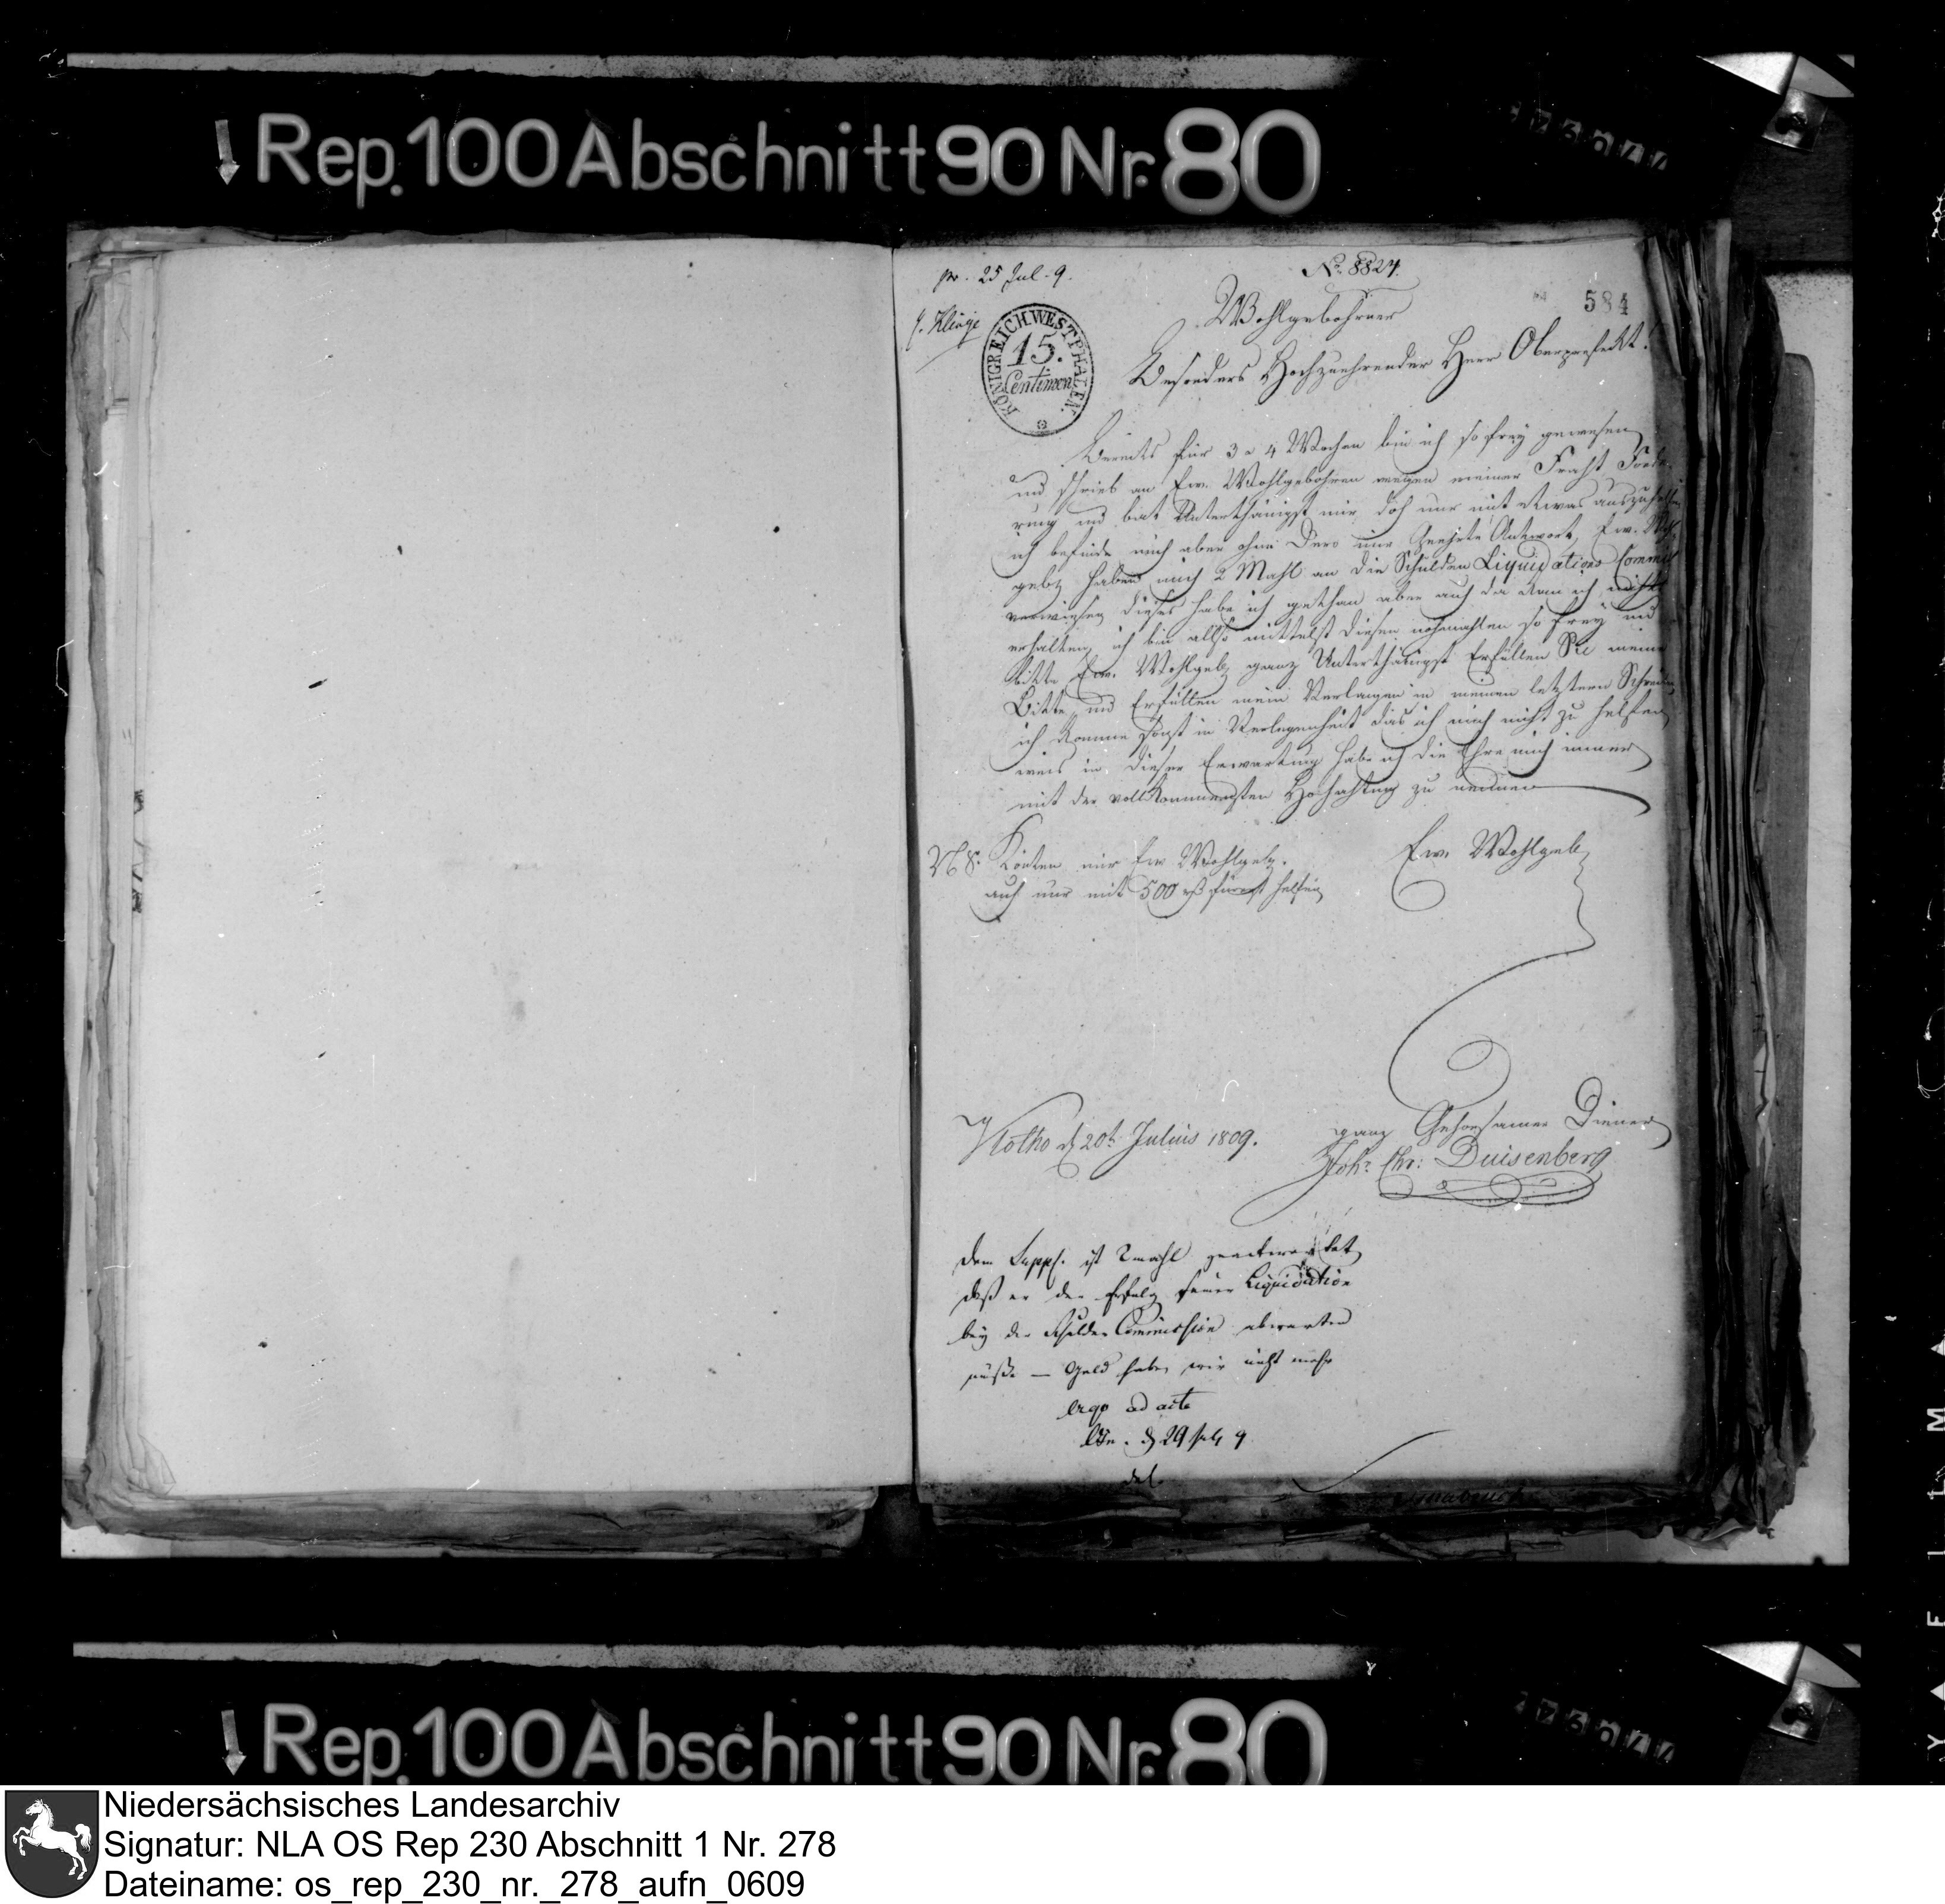 Rep. 100 Abschnitt 90 Nr. 80
pr. 25 Jul. 9.
No. 8824.
584
Klinge
KÖNIGREICH WESTPHALEN.
15.
Centimen
Wohlgebohrner
Besonders Hochzuehrender Herr Oberprefekt!
Bereits für 3 a 4 Wochen bin ich so frey gewesen
und schrieb an Ew. Wohlgebohren wegen meiner Fracht Forde-
rung und bat Unterthänigst mir doch nur mit etwas auszuhelfen
ich befinde mich aber ohne Dero mir Geehrte Antwort, Ew. Wohl
geb haben mich 2 Mahl an die Schulden Liquidations Commis
verwiesen dieses habe ich gethan aber auch da kan ich nichts
erhalten, ich bin allso mittelst diesen nochmahlen so frey und
bitte Ew. Wohlgeb ganz Unterthänigst Erfüllen Sie meine
Bitte und Erfüllen mein Verlangen in meinen letztern Schreiben
ich komme sonst in Verlegenheit das ich mich nicht zu helfen
weis in dieser Erwartung habe ich die Ehre mich immer
mit der vollkommensten Hochachtung zu nennen
NS. Könten mir Ew Wohlgeb.
auch nur mit 500 rß fürerst helfen
Ew. Wohlgeb
Vlotho d 20t Julius 1809.
ganz Gehorsamer Diener
Joh: Chr: Duisenberg
Dem Suppl. ist 2mahl geantwortet
daß er den Erfolg seiner Liquidation
bey der Schulden Commission abwarten
müße — Geld haben wir nicht mehr
ergo ad acta
d 29 Jul 9
Rep. 100 Abschnitt 90 Nr. 80
Niedersächsisches Landesarchiv
Signatur: NLA OS Rep 230 Abschnitt 1 Nr. 278
Dateiname: os_rep_230_nr._278_aufn_0609